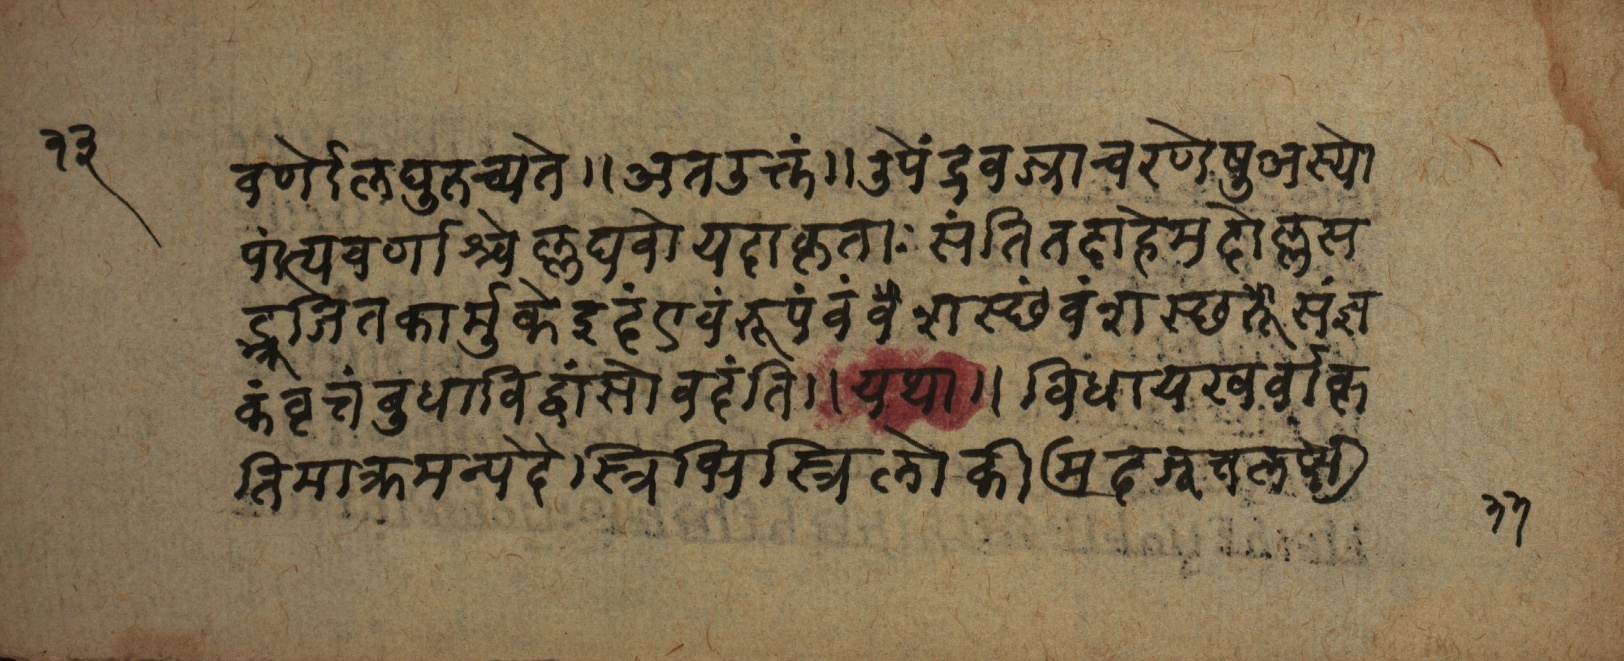 १३
वर्णोलघुरुच्यते॥अतउक्तं॥उपेंद्रवज्राचरणेषुअस्यो
पांत्यवर्णाश्चेल्लघवोयदाकृताःसंतितदाहेमदोल्लस
द्भ्रूजितकार्मुकेइदंएवंरूपंवंवैशस्छंवंशस्छरूपैसंज्ञ
कंवृत्तंबुधाविद्वांसोवदंति॥यथा॥विधायखर्वाकृ
तिमाक्रमन्पदैस्त्रिभिस्त्रिलोकीं
११